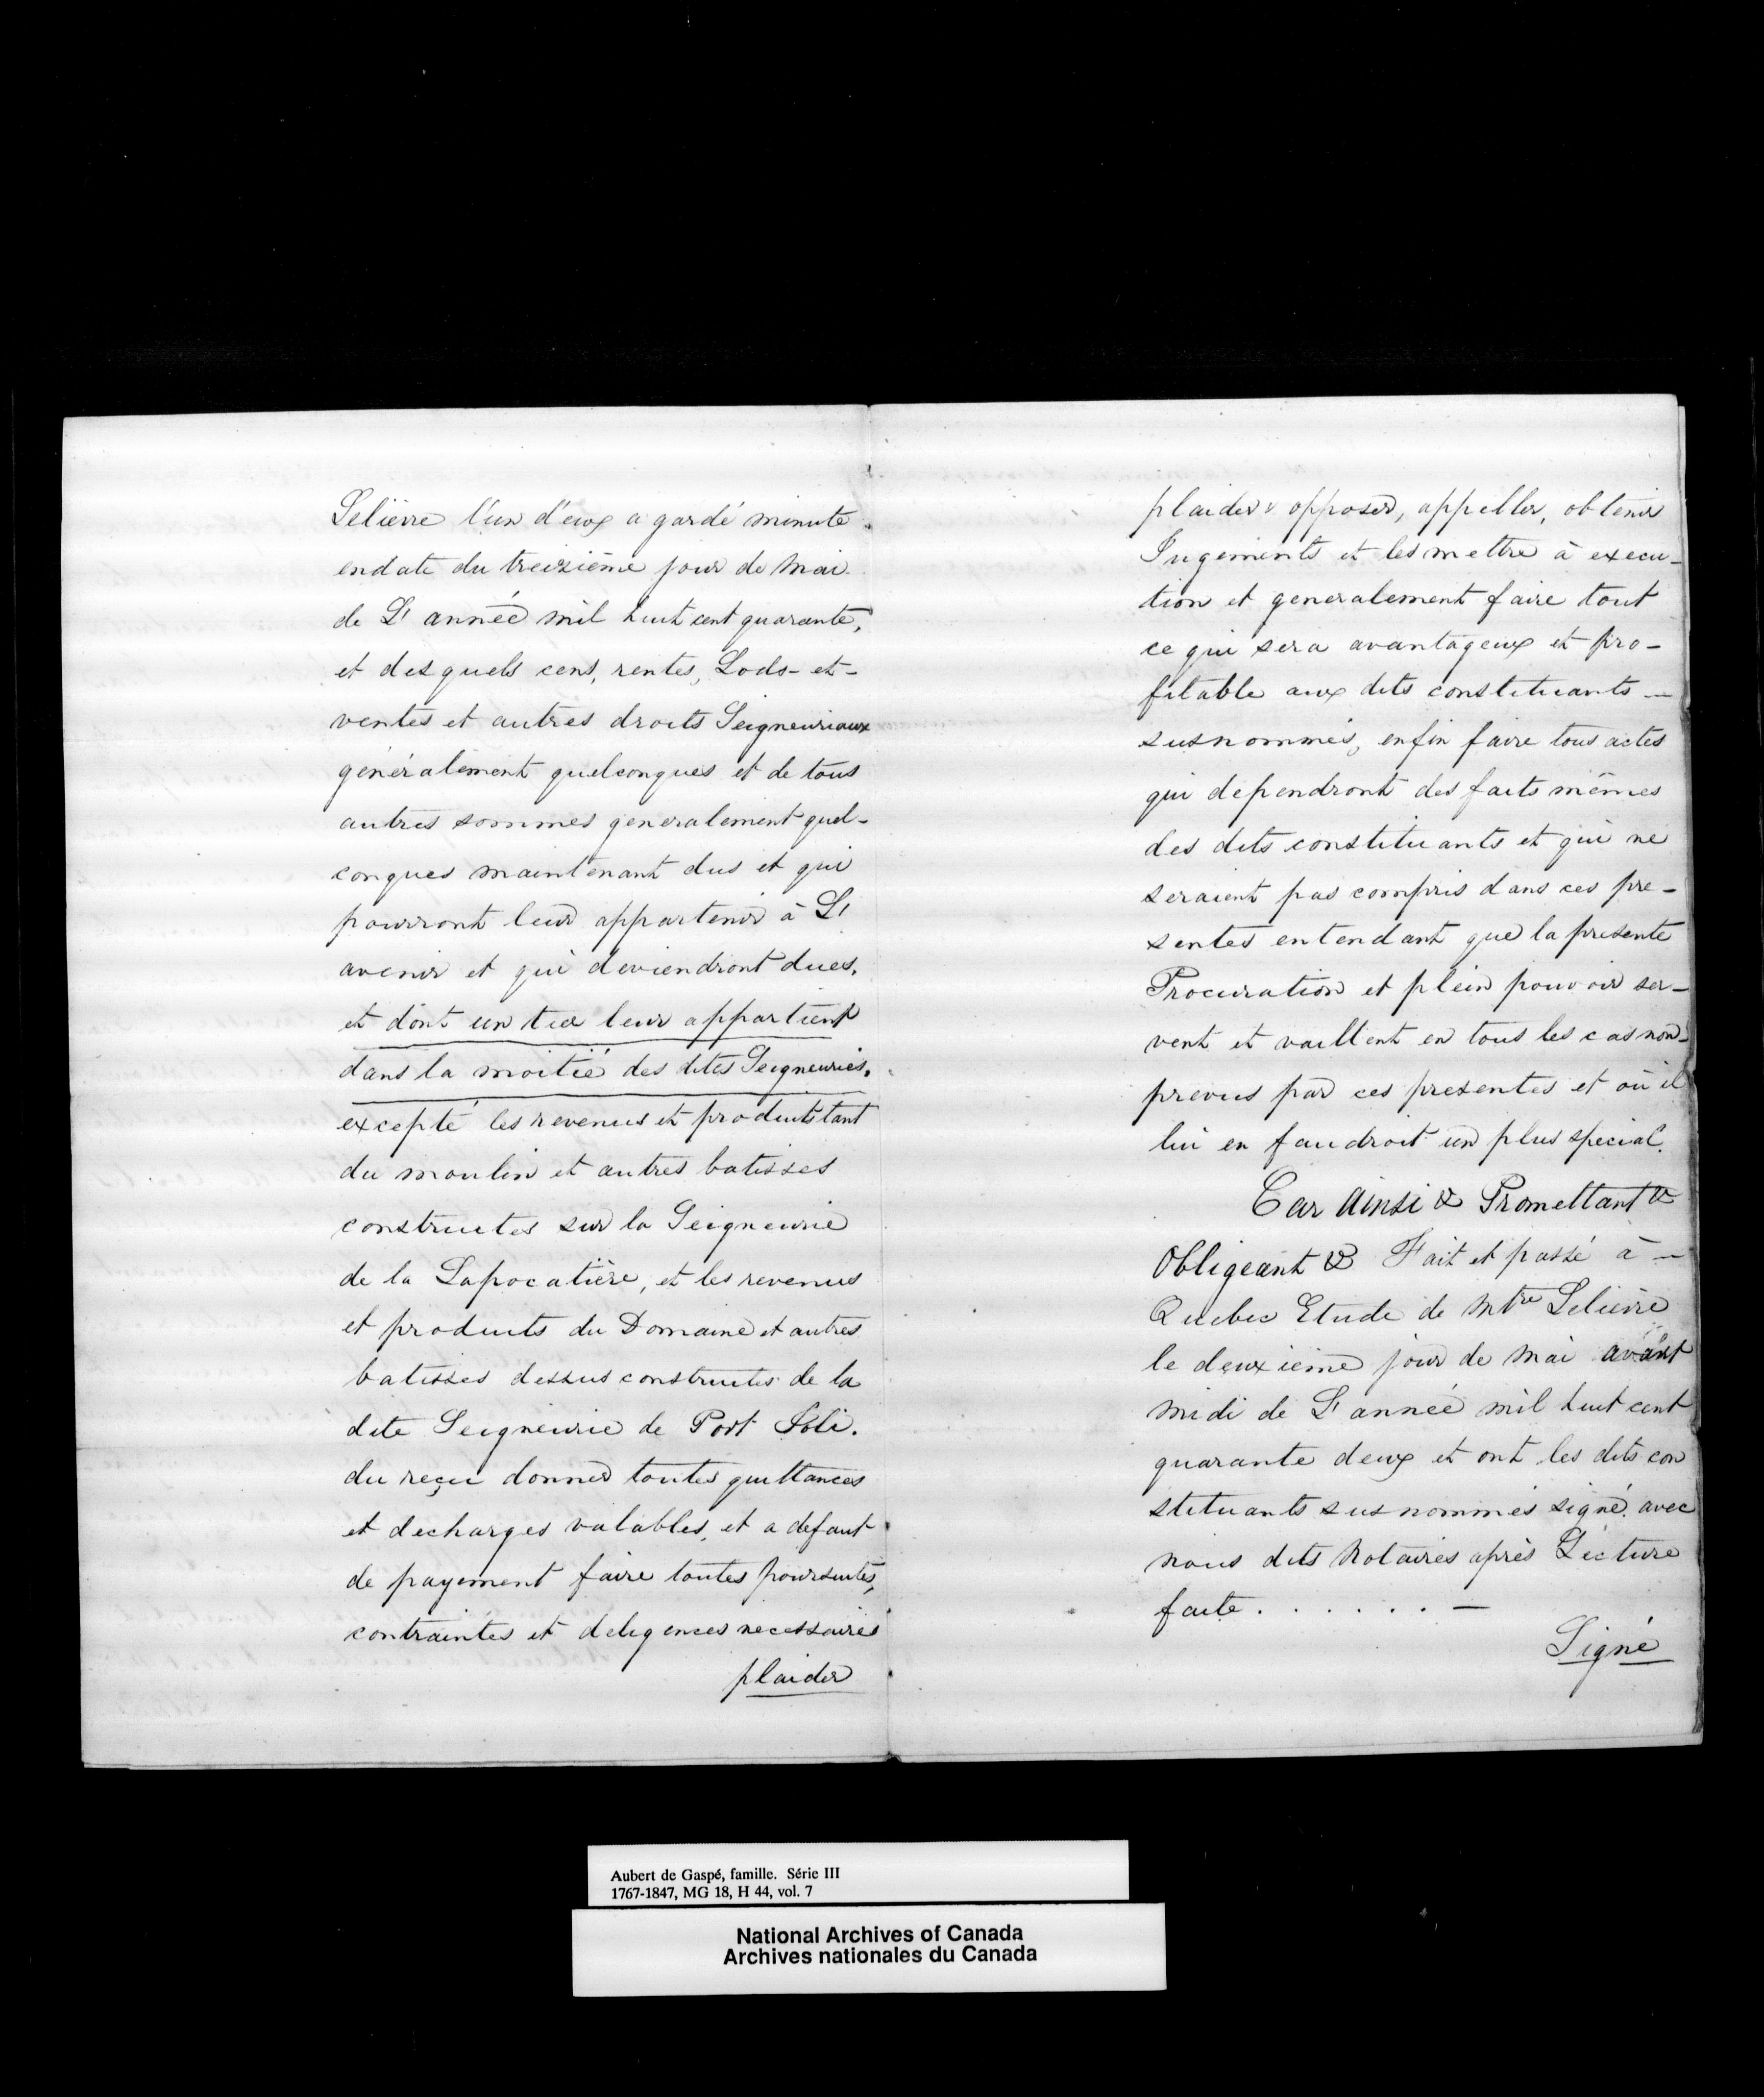 Lelièvre l'un d'eux a gardé minute
endate du treizième jour de Mai
de L'année mil huit cent quarante,
et desquels cens, rentes, Lods-et-
ventes et autres droits Seigneuriaux
généralement quelconques et de tous
autres sommes generalement quel-
conques maintenant dus et qui
pourront leur appartenir à L'
avenir et qui deviendront dues,
et dont un tier leur appartient
dans la moitié des dites Seigneuries,
excepté les revenus et produits tant
du moulin et autres batisses
construites sur la Seigneurie
de la Lapocatière, et les revenus
et produits du Domaine et autres
batisses dessus construites de la
dite Seigneurie de Port Joli.
du reçu donner toutes quittances
et decharges valables, et a defaut
de payement faire toutes poursuites,
contraintes et deligences necessaires
plaider
plaider opposer, appeller, obtenir
Jugements et les mettre à execu-
tion et generalement faire tout
ce qui sera avantageux et pro-
fitable aux dits constituants —
susnommés, enfin faire tous actes
qui dependront des faits mêmes
des dits constituants et qui ne
seraient pas compris dans ces pre-
sentes entendant que la presente
Procuration et plein pouvoir ser-
vent et vaillent en tous les cas non-
prevus par ces presentes et où il
lui en faudroit un plus special.
Car Ainsi & Promettant &
Obligeant & Fait et passé à —
Quebec Etude de Mtre Lelièvre
le deuxieme jour de Mai avant
midi de L'année mil huit cent
quarante deux et ont les dits con
stituants susnommés signé avec
nous dits Notaires après Lecture
faite . . . . . . —
Signé
Aubert de Gaspé, famille. Série III
1767-1847, MG 18, H 44, vol. 7
National Archives of Canada
Archives nationales du Canada